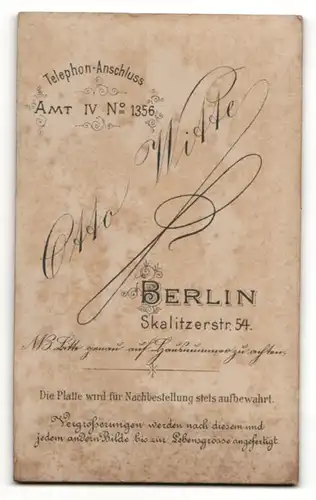 Telephon-Anschluss
AMT IV No 1356
Otto Witte
BERLIN
Skalitzerstr. 54.
NB. Bitte genau auf Hausnummer zu achten.
Die Platte wird für Nachbestellung stets aufbewahrt.
Vergrößerungen werden nach diesem und
jedem andern Bilde bis zur Lebensgrosse angefertigt.